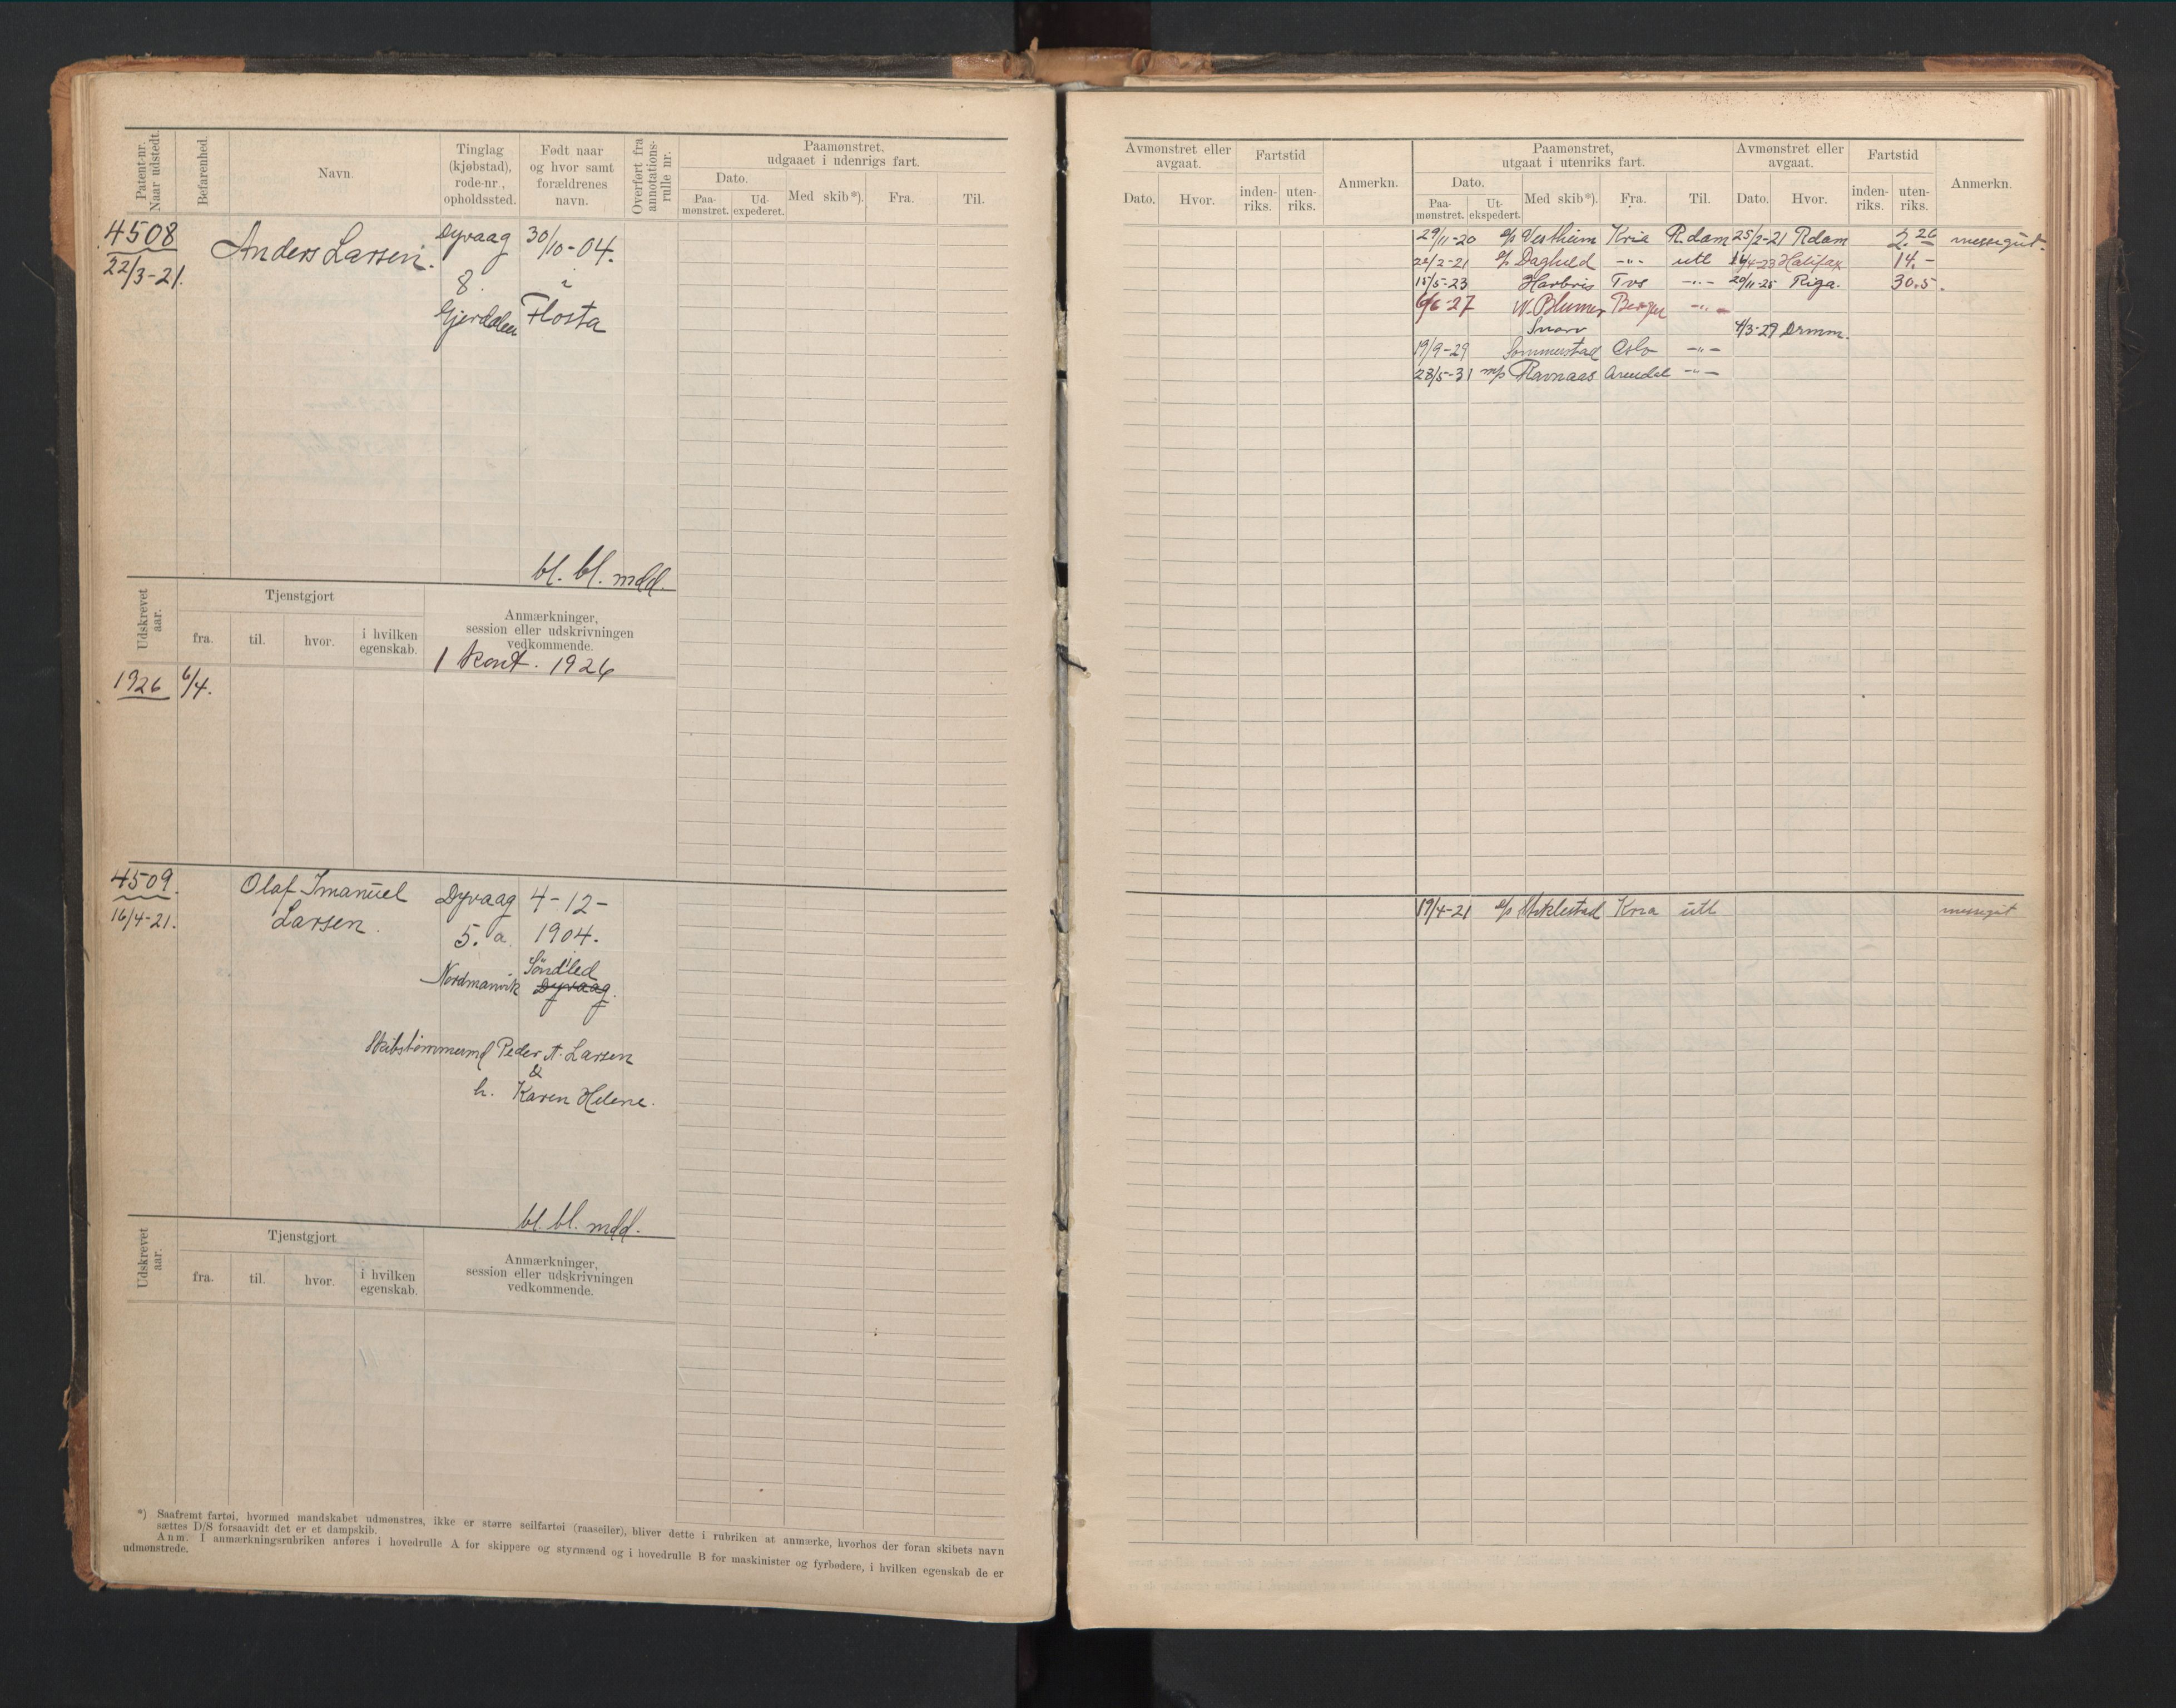 Patent-nr. Naar udstedt.
Befarenhed.
Navn.
Tinglag (kjøbstad), rode-nr., opholdssted.
Født naar og hvor samt forældrenes navn.
Overført fra annotations-rulle nr.
Paamønstret, udgaaet i udenrigs fart.
Dato.
Paa-mønstret.
Ud-expederet.
Med skib*).
Fra.
Til.
4508
22/3-21.
Anders Larsen.
Dyvaag
8.
Gjerdalen
30/10-04.
i
Flosta
bl. bl. mdd.
Udskrevet aar.
Tjenstgjort
fra.
til.
hvor.
i hvilken egenskab.
Anmærkninger, session eller udskrivningen vedkommende.
1 kont. 1926
1926 6/4.
4509.
16/4-21.
Olaf Imanuel
Larsen.
Dyvaag
5. a.
Nordmanvik
4-12-
1904.
Søndled
Dyvaag.
Skibstømmermd Peder A. Larsen
&
h. Karen Helene.
bl. bl. mdd.
Udskrevet aar.
Tjenstgjort
fra.
til.
hvor.
i hvilken egenskab.
Anmærkninger, session eller udskrivningen vedkommende.
*) Saafremt fartøi, hvormed mandskabet udmønstres, ikke er større seilfartøi (raaseiler), bliver dette i rubriken at anmærke, hvorhos der foran skibets navn
sættes D/S forsaavidt det er et dampskib.
Anm. I anmærkningsrubriken anføres i hovedrulle A for skippere og styrmænd og i hovedrulle B for maskinister og fyrbødere, i hvilken egenskab de er
udmønstrede.
Avmønstret eller avgaat.
Dato.
Hvor.
Fartstid
inden-riks.
uten-riks.
Anmerkn.
Paamønstret, utgaat i utenriks fart.
Dato.
Paa-mønstret.
Ut-ekspedert.
Med skib*).
Fra.
Til.
Avmønstret eller avgaat.
Dato.
Hvor.
Fartstid
inden-riks.
uten-riks.
Anmerkn.
29/11-20 s/s Vestheim Kria R.dam 25/2-21 Rdam 2.26 messegut.
22/2-21 s/s Daghild -"- utl 16/4-23 Halifax 14.-
15/5-23 Harbris Tvs -"- 20/11-25 Riga. 30.5.
6/6-27 W. Blumer Bergen -"-
Snarv 4/3-29 Drmm.
19/9-29 Sommerstad Oslo -"-
28/5-31 m/s Ravnaas Arendal -"-
19/4-21 s/s Stiklestad Kria utl messegut